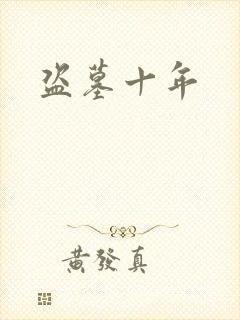 盗墓十年
黄發真